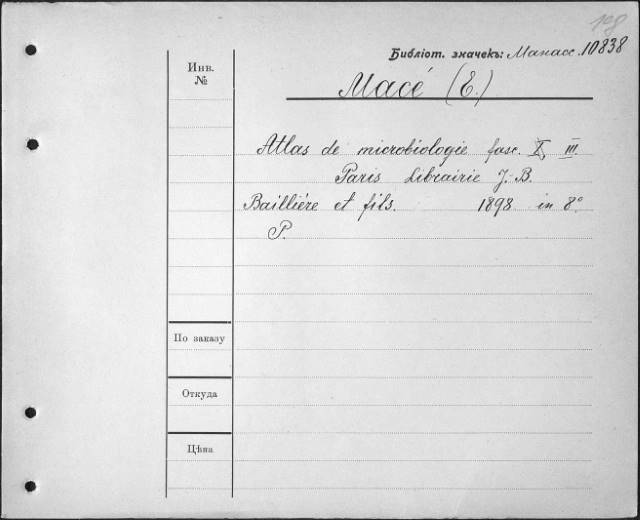 Библіот. значекъ: Манасс. 10838
Инв.
№
Macé (E.)
Atlas de microbiologie fasc. I, III.
Paris Librairie J.-B.
Baillière et fils. 1898 in 8°
P.
По заказу
Откуда
Цѣна